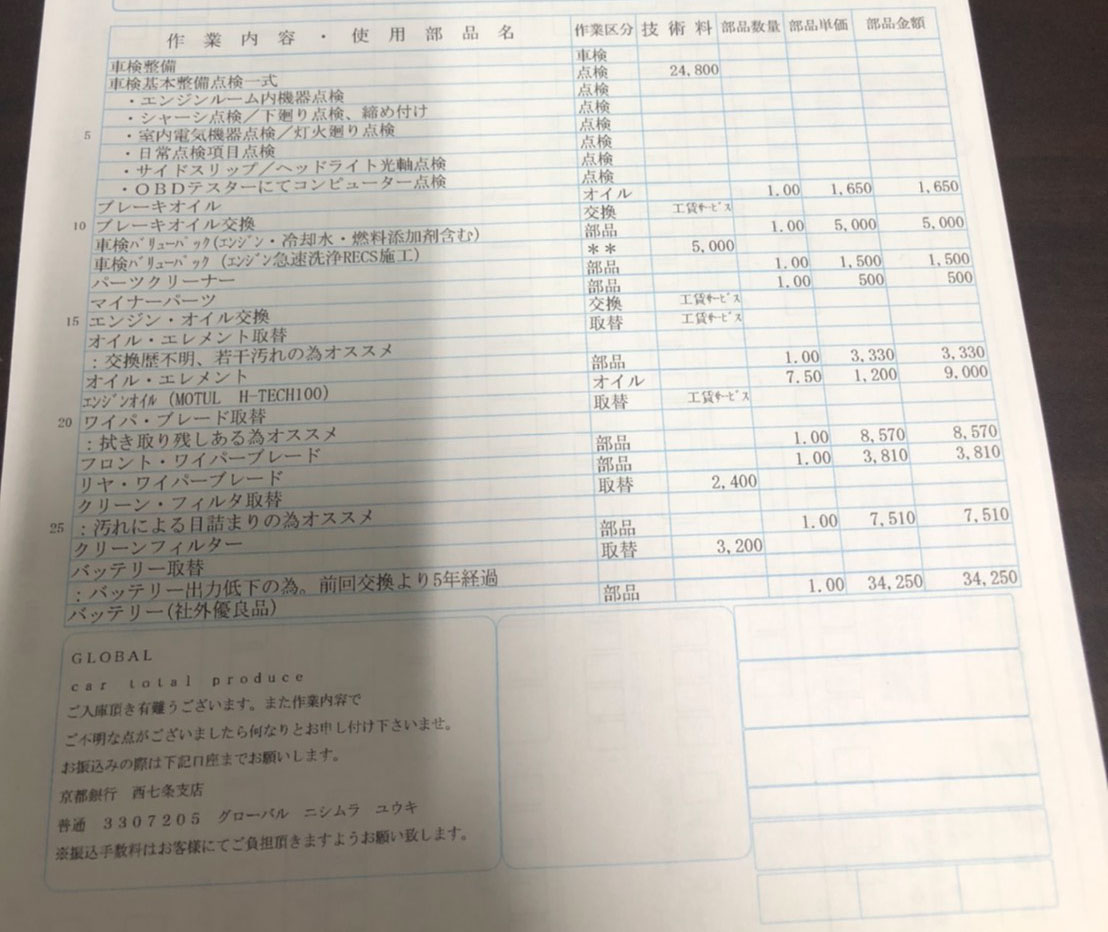 作業内容・使用部品名 作業区分 技術料 部品数量 部品単価 部品金額
車検整備 車検
車検基本整備点検一式 点検 24,800
・エンジンルーム内機器点検 点検
・シャーシ点検／下廻り点検、締め付け 点検
5 ・室内電気機器点検／灯火廻り点検 点検
・日常点検項目点検 点検
・サイドスリップ／ヘッドライト光軸点検 点検
・OBDテスターにてコンピューター点検 点検
ブレーキオイル オイル 1.00 1,650 1,650
10 ブレーキオイル交換 交換 工賃ｻｰﾋﾞｽ
車検ﾊﾞﾘｭｰﾊﾟｯｸ(ｴﾝｼﾞﾝ・冷却水・燃料添加剤含む) 部品 1.00 5,000 5,000
車検ﾊﾞﾘｭｰﾊﾟｯｸ (ｴﾝｼﾞﾝ急速洗浄RECS施工) ** 5,000
パーツクリーナー 部品 1.00 1,500 1,500
マイナーパーツ 部品 1.00 500 500
15 エンジン・オイル交換 交換 工賃ｻｰﾋﾞｽ
オイル・エレメント取替 取替 工賃ｻｰﾋﾞｽ
：交換歴不明、若干汚れの為オススメ
オイル・エレメント 部品 1.00 3,330 3,330
ｴﾝｼﾞﾝｵｲﾙ (MOTUL H-TECH100) オイル 7.50 1,200 9,000
20 ワイパ・ブレード取替 取替 工賃ｻｰﾋﾞｽ
：拭き取り残しある為オススメ
フロント・ワイパーブレード 部品 1.00 8,570 8,570
リヤ・ワイパーブレード 部品 1.00 3,810 3,810
クリーン・フィルタ取替 取替 2,400
25 ：汚れによる目詰まりの為オススメ
クリーンフィルター 部品 1.00 7,510 7,510
バッテリー取替 取替 3,200
：バッテリー出力低下の為。前回交換より5年経過
バッテリー(社外優良品) 部品 1.00 34,250 34,250
GLOBAL
car total produce
ご入庫頂き有難うございます。また作業内容で
ご不明な点がございましたら何なりとお申し付け下さいませ。
お振込みの際は下記口座までお願いします。
京都銀行 西七条支店
普通 3307205 グローバル ニシムラ ユウキ
※振込手数料はお客様にてご負担頂きますようお願い致します。